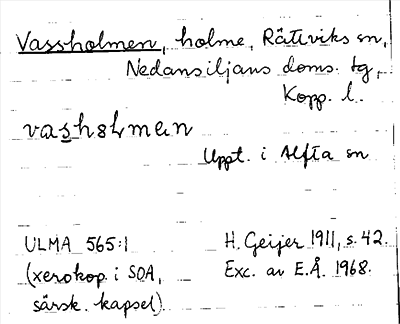 Vassholmen, holme, Rättviks sn,
Nedansiljans doms. tg,
Kopp. l.
vashολmen
Uppt. i Alfta sn
ULMA 565:1
H. Geijer 1911, s. 42.
(xerokop. i SOA,
Exc. av E.Å. 1968.
särsk. kapsel)